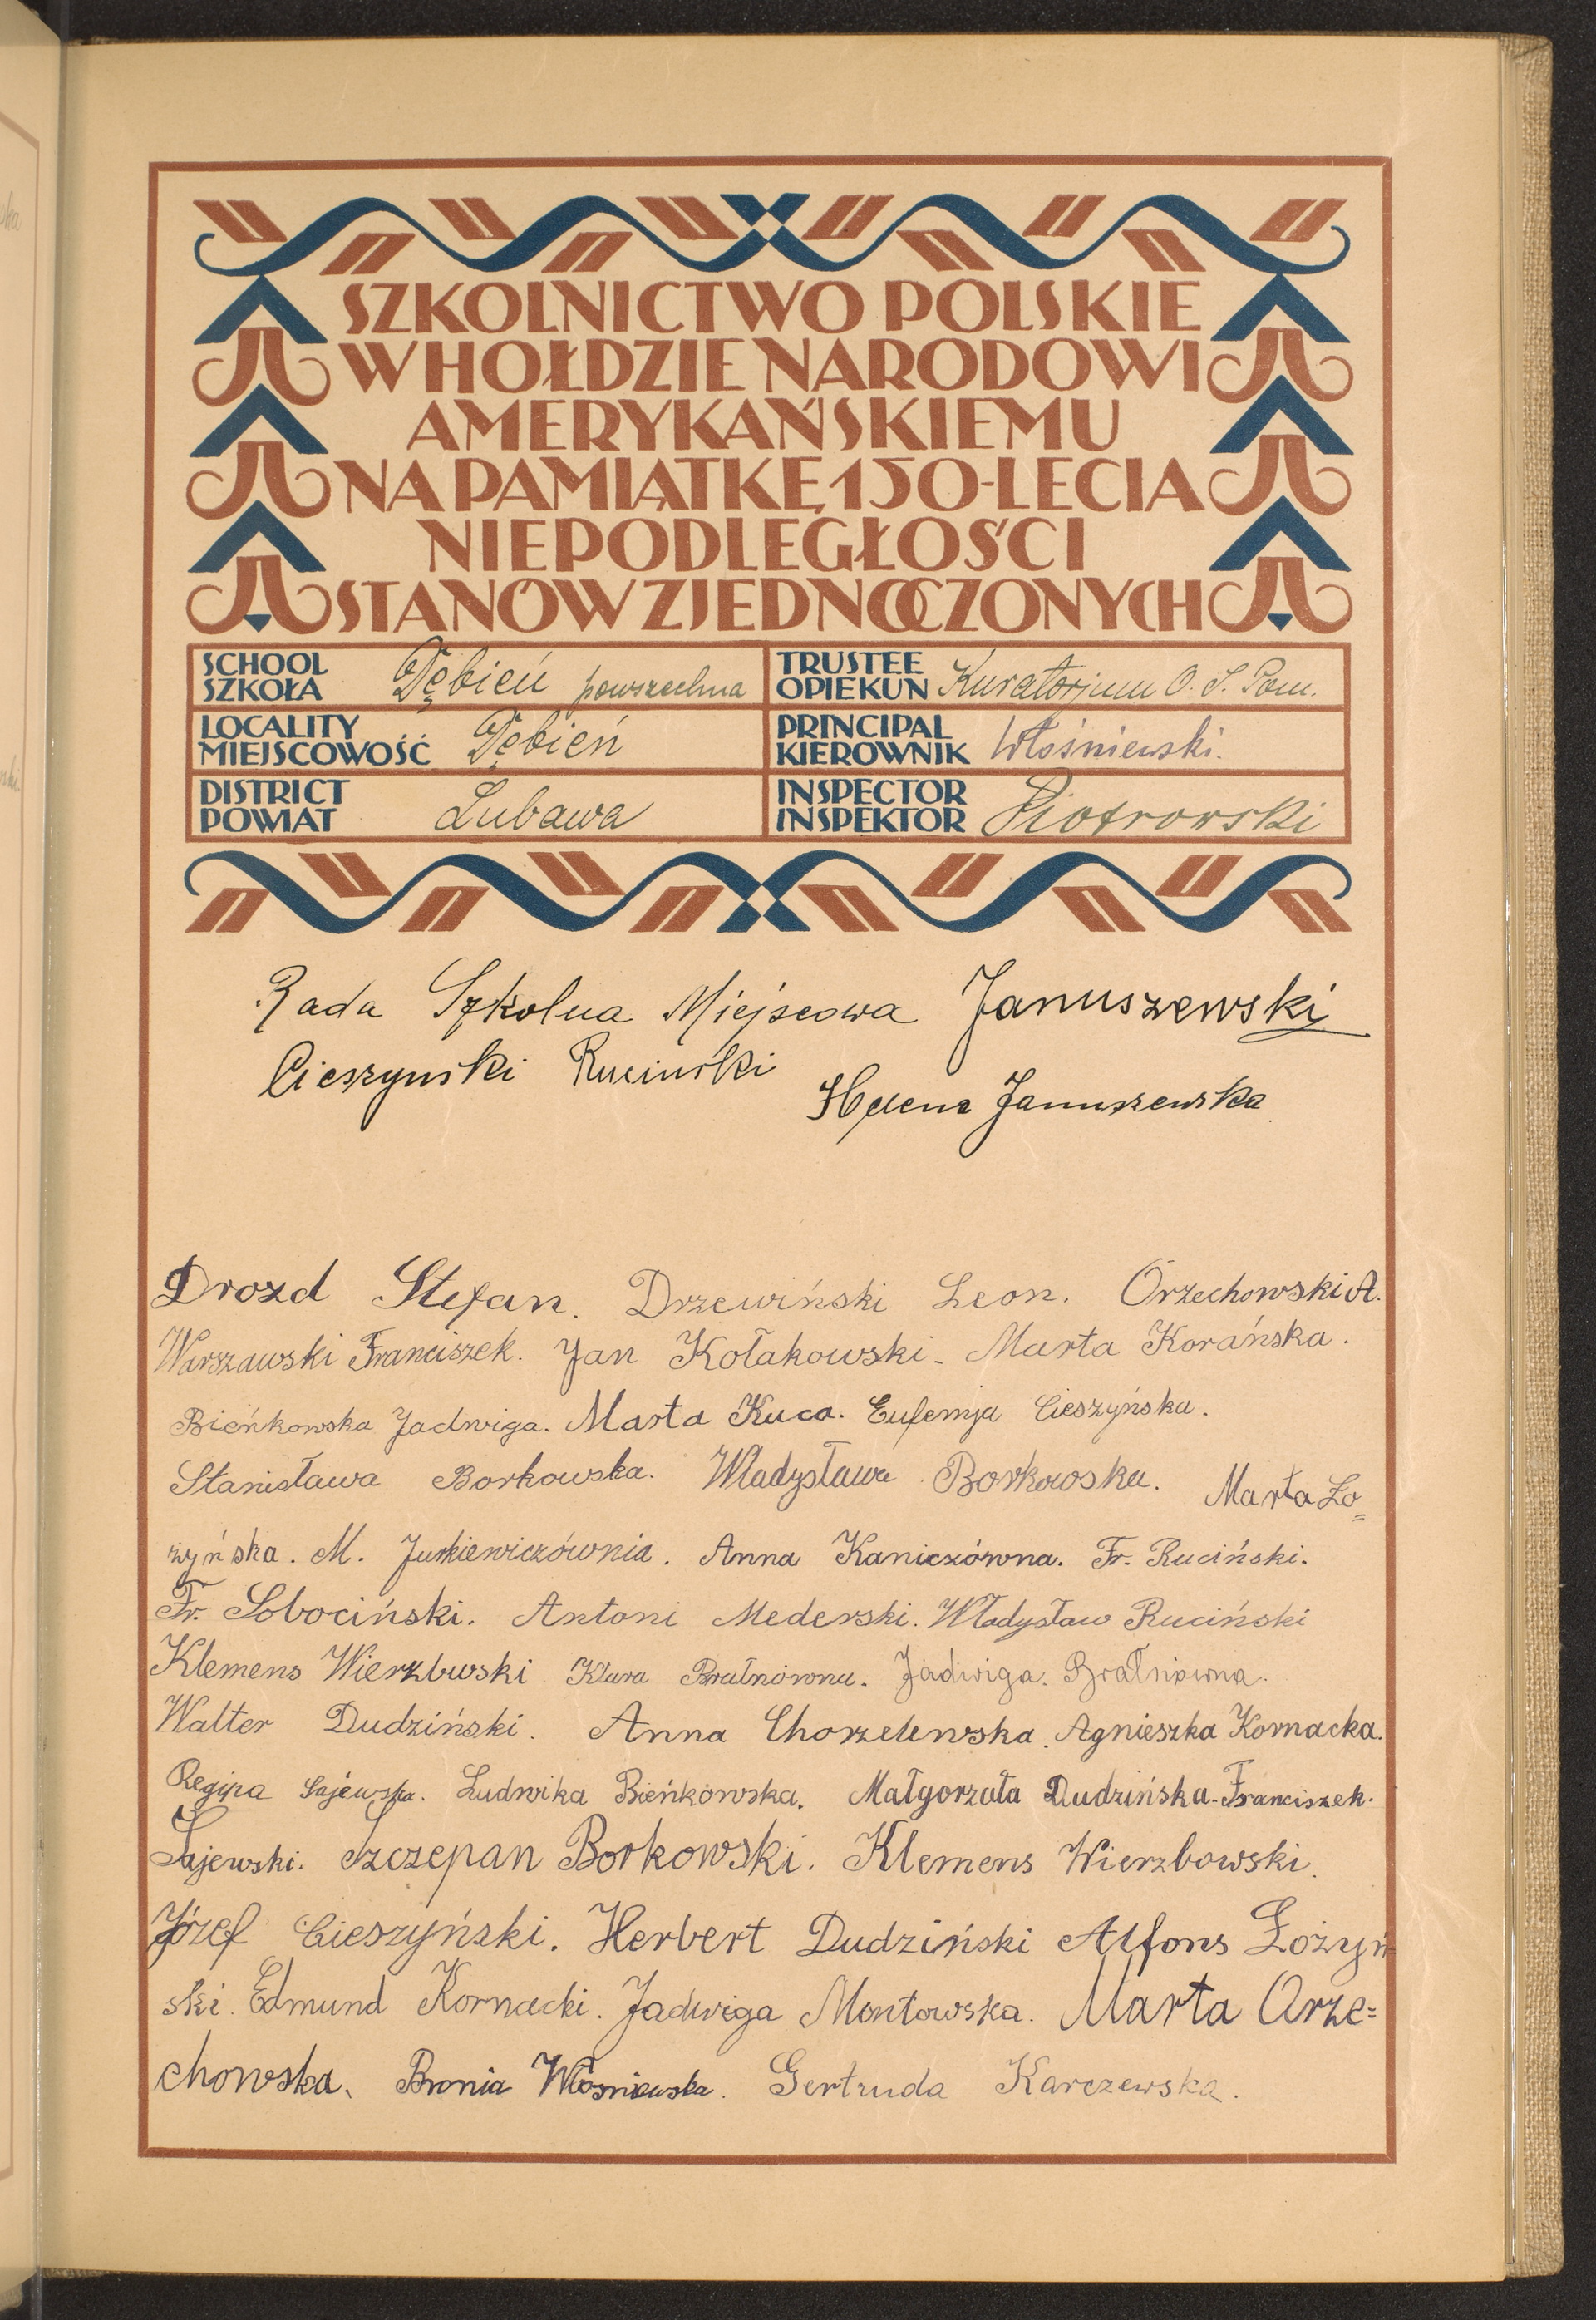 SZKOLNICTWO POLSKIE
W HOŁDZIE NARODOWI
AMERYKAŃSKIEMU
NA PAMIĄTKĘ 150-LECIA
NIEPODLEGŁOŚCI
STANÓW ZJEDNOCZONYCH
SCHOOL
SZKOŁA Dębień powszechna
TRUSTEE
OPIEKUN Kuratorjum O. S. Pom.
LOCALITY
MIEJSCOWOŚĆ Dębień
PRINCIPAL
KIEROWNIK Włośniewski.
DISTRICT
POWIAT Lubawa
INSPECTOR
INSPEKTOR Piotrowski
Rada Szkolna Miejscowa Januszewski
Cieszynski Rucinski
Helena Januszewska
Drozd Stefan. Drzewiński Leon. Orzechowski A.
Warszawski Franciszek. Jan Kołakowski - Marta Korańska.
Bieńkowska Jadwiga. Marta Kuca. Eufemja Cieszyńska.
Stanisława Borkowska. Władysława Borkowska. Marta Ło=
zyńska. M. Jurkiewiczównia. Anna Kaniczówna. Fr. Ruciński.
Fr. Sobociński. Antoni Mederski. Władysław Ruciński
Klemens Wierzbwski Klara Bratnówna. Jadwiga. Bratniówna.
Walter Dudziński. Anna Chorzelewska. Agnieszka Kornacka.
Regina Gajewska. Ludwika Bieńkowska. Małgorzata Dudzińska. Franciszek.
Gajewski. Szczepan Borkowski. Klemens Wierzbowski.
Józef Cieszyński. Herbert Dudziński Alfons Łożyń
ski. Edmund Kornacki. Jadwiga Montowska. Marta Orze=
chowska. Bronia Włośniewska. Gertruda Karczewska.